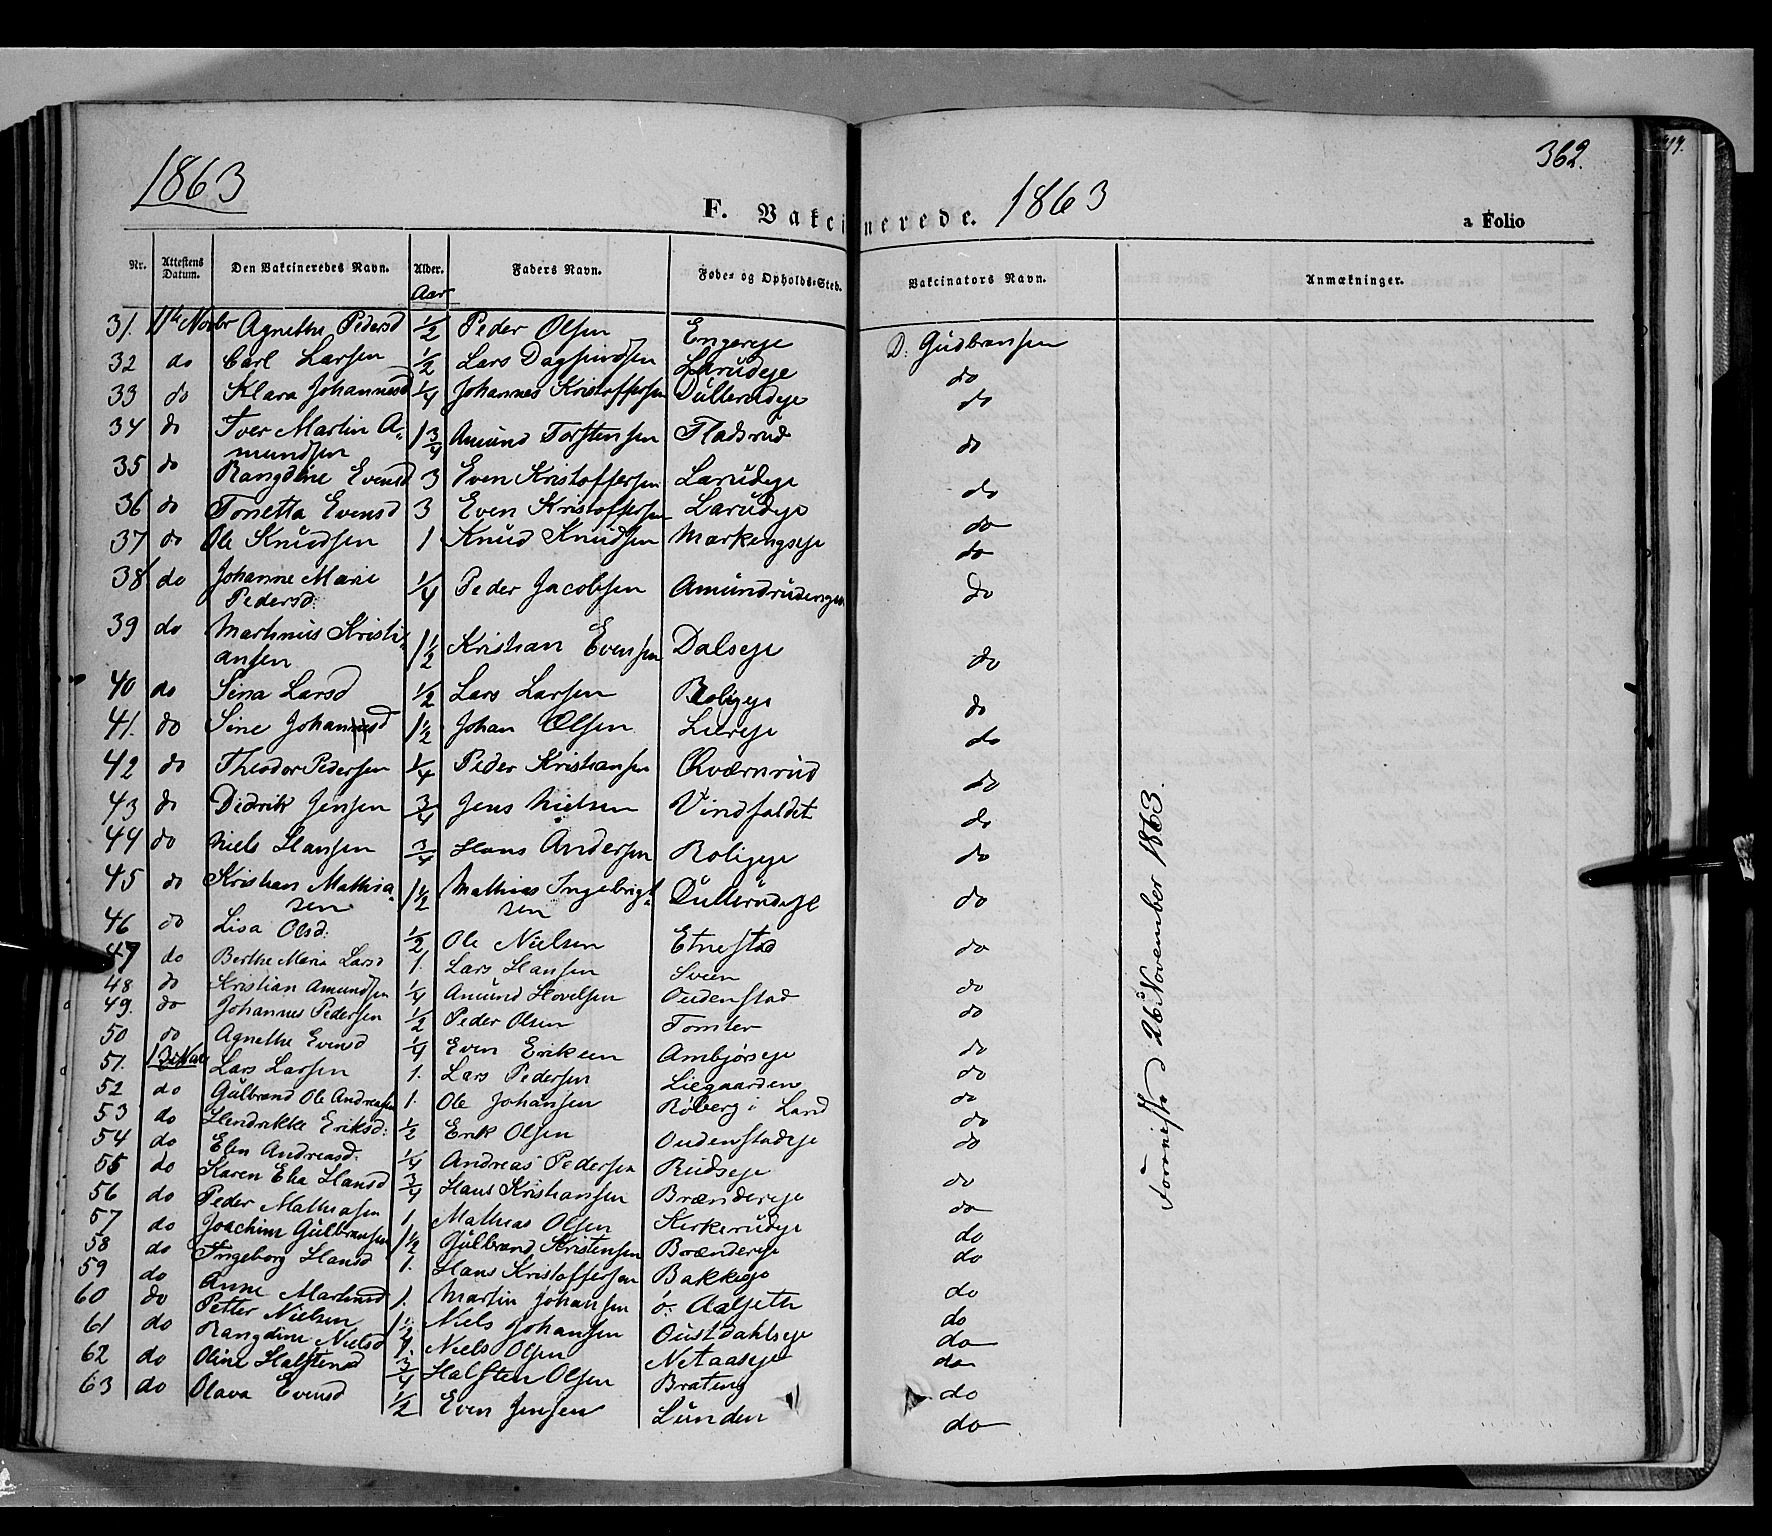 1863
362.
F. Vakcinerede. 1863
a Folio
Nr. Attestens Datum. Den Vakcineredes Navn. Alder. Faders Navn. Føde- og Opholds-Sted. Vakcinators Navn. Anmærkninger.
Aar
31. 11te Novbr Agnethe Pedersd 1/2 Peder Olsen Engereje D: Gudbransen
32 do Carl Larsen 1/2 Lars Dagfindsen Larudeje do
33 do Klara Johannesd 1/4 Johannes Kristoffersen Dullerudeje do
34 do Iver Martin A-
mundsen 1 3/4 Amund Torstensen Fladsrud do
35 do Rangdine Evensd 3 Even Kristoffersen Larudeje do
36 do Tonetta Evensd 3 Even Kristoffersen Larudeje do
37 do Ole Knudsen 1 Knud Knudsen Markengseje do
38 do Johanne Marie
Pedersd: 1/4 Peder Jacobsen Amundrudengen do
39 do Martinus Kristi-
ansen 1 1/2 Kristian Evensen Dalseje do
40 do Sina Larsd 1/2 Lars Larsen Roligeje do
41. do Sine Johansd 1 1/2 Johan Olsen Liereje do
42 do Theodor Pedersen 1/4 Peder Kristiansen Qværnrud do
43 do Didrik Jensen 3/4 Jens Nielsen Vindfaldet do
44 do Niels Hansen 3/4 Hans Andersen Roligeje do
45 do Kristian Mathia-
sen 1 1/2 Mathias Ingebrigt-
sen Dullerudeje do
46 do Lisa Olsd: 1/2 Ole Nielsen Etnestad do
47 do Berthe Maria Larsd 1. Lars Hansen Sveen do
48 do Kristian Amundsen 1/4 Amund Hovelsen Oudenstad do
49. do Johannes Pedersen 1/2 Peder Olsen Tomler do
50 do Agnethe Evensd 1/4 Even Eriksen Ambjørseje do
51. 13de Nov Lars Larsen 1. Lars Pedersen Liegaarden do
52 do Gulbrand Ole Andreasen 1. Ole Johansen Røberg i Land do
53 do Hendrikke Eriksd: 1/2 Erik Olsen Oudenstadeje do
54 do Elen Andreasd: 1/4 Andreas Pedersen Rudseje do
55 do Karen Elia Hansd 3/4 Hans Kristiansen Brændereje do
56 do Peder Mathiasen 1. Mathias Olsen Kirkerudeje do
57 do Joachim Gulbransen 1 1/2 Gulbrand Kristensen Brændereje do
58 do Ingeborg Hansd 1. Hans Kristoffersen Bakkeje do
59 do Anne Martinsd 1. Martin Johansen ø. Aalseth do
60 do Petter Nielsen 1 1/2 Niels Johansen Oustdahlseje do
61 do Rangdine Nielsd 4. Niels Olsen Netaaseje do
62 do Oline Halstensd 3/4 Halsten Olsen Brateng do
63 do Olava Evensd 1/2 Even Jensen Lunden do
26de November 1863.